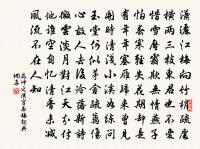 瀟灑江梅向竹梢疏處
橫兩三枝東君也不愛
惜雪壓霜欺無情燕子
怕春寒輕失花期卻是
有年年塞雁歸來曾見
開時清淺小溪如練問
玉堂何似茅舍疏籬傷
心故人去後冷落新詩
微雲淡月對江天分付
他誰空自憶清香未減
風流不在人知
晁沖之漢宮春梅